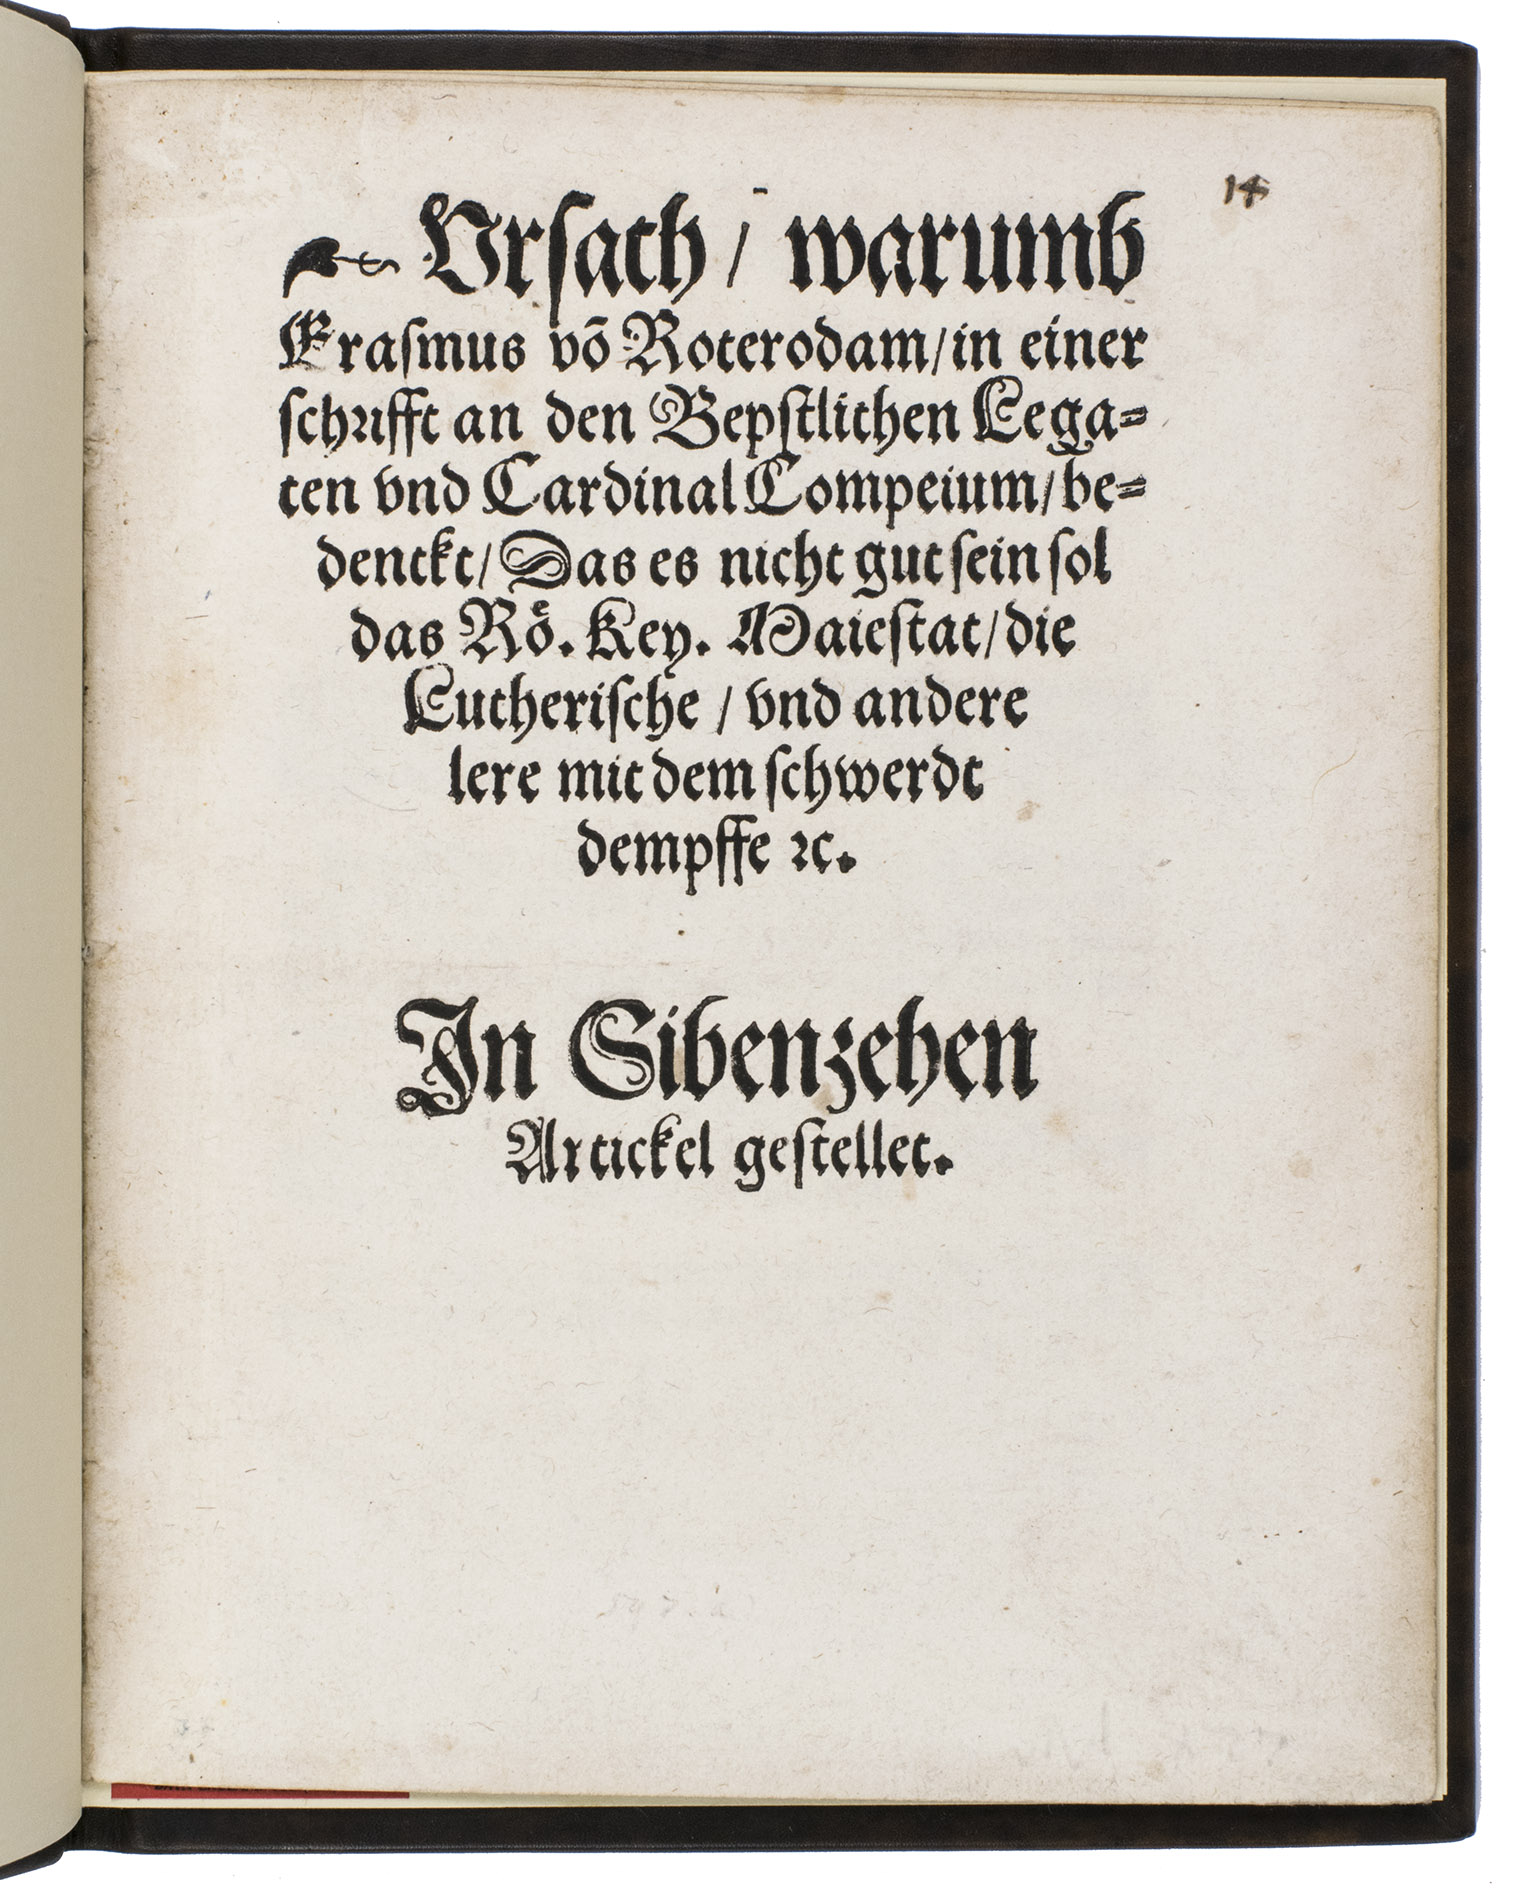 14
☙ Vrsach / warumb
Erasmus võ Roterodam/ in einer
schrifft an den Bepstlichen Lega⸗
ten vnd Cardinal Compeium/ be⸗
denckt/ Das es nicht gut sein sol
das Roͤ. Key. Maiestat/ die
Lutherische / vnd andere
lere mit dem schwerdt
dempffe ꝛc.
In Sibenzehen
Artickel gestellet.